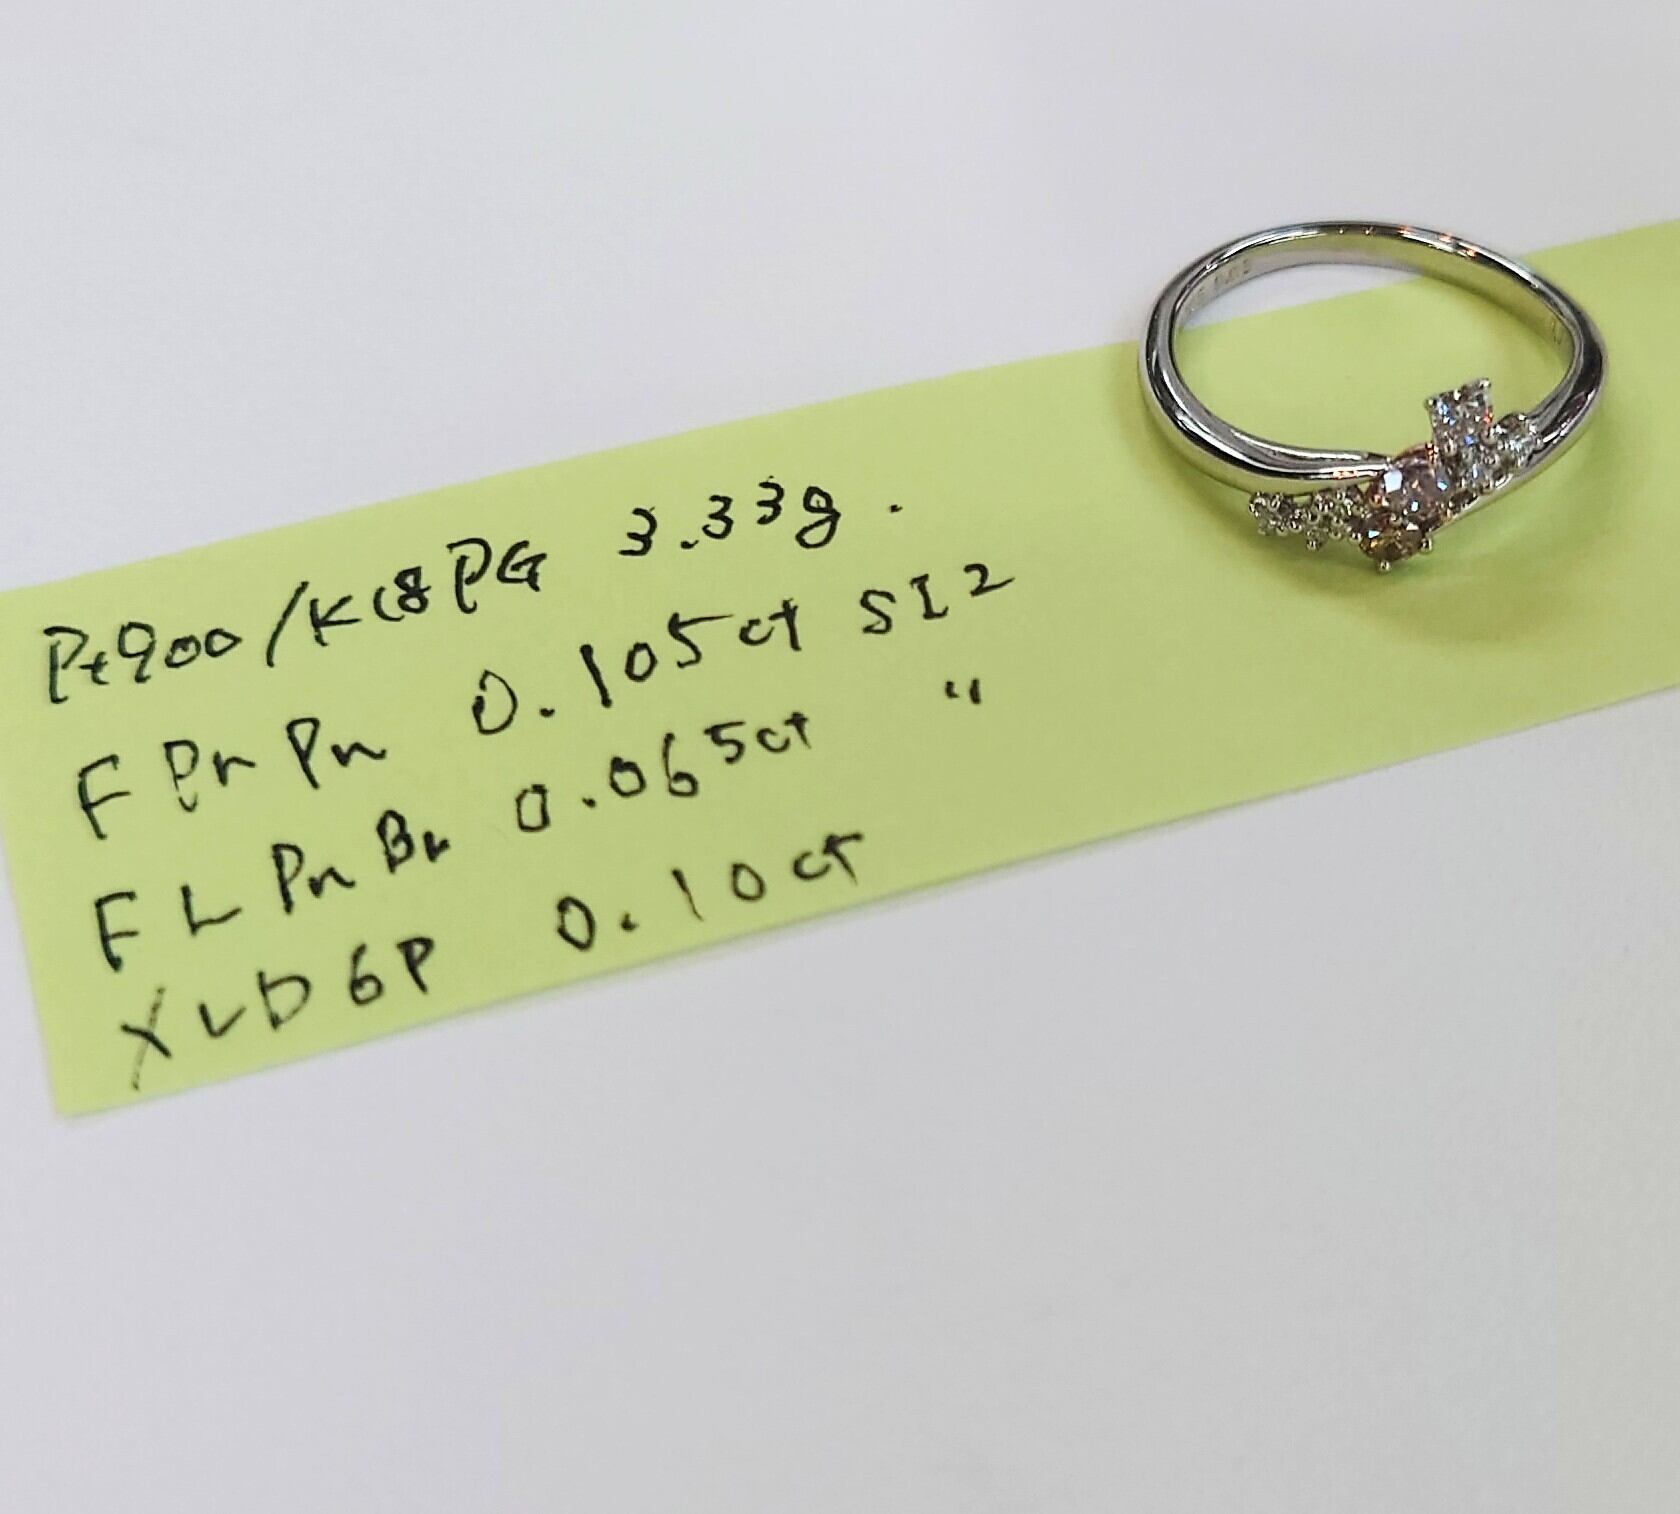 Pt900/K18PG 3.33g.
F Pn Pn 0.105ct SI2
F L Pn Br 0.065ct "
XLD 6P 0.10ct